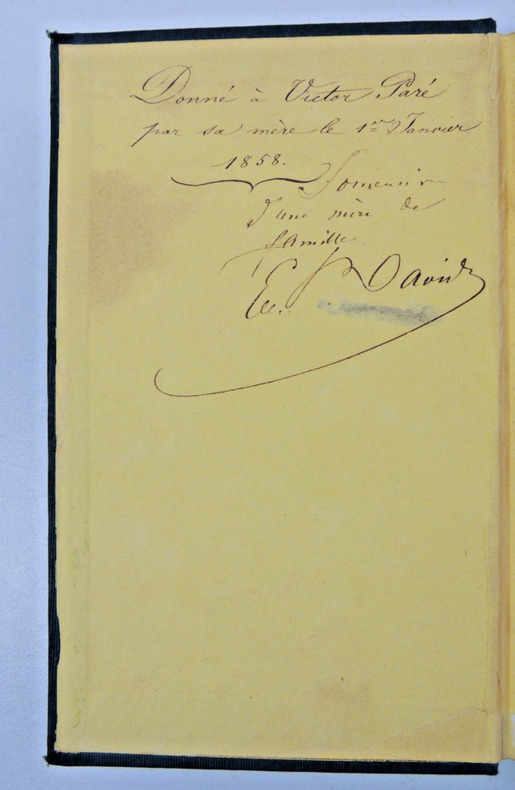 Donné à Victor Paré
par sa mère le 1er Janvier
1858.
Souvenir
d'une mère de
famille
E. David